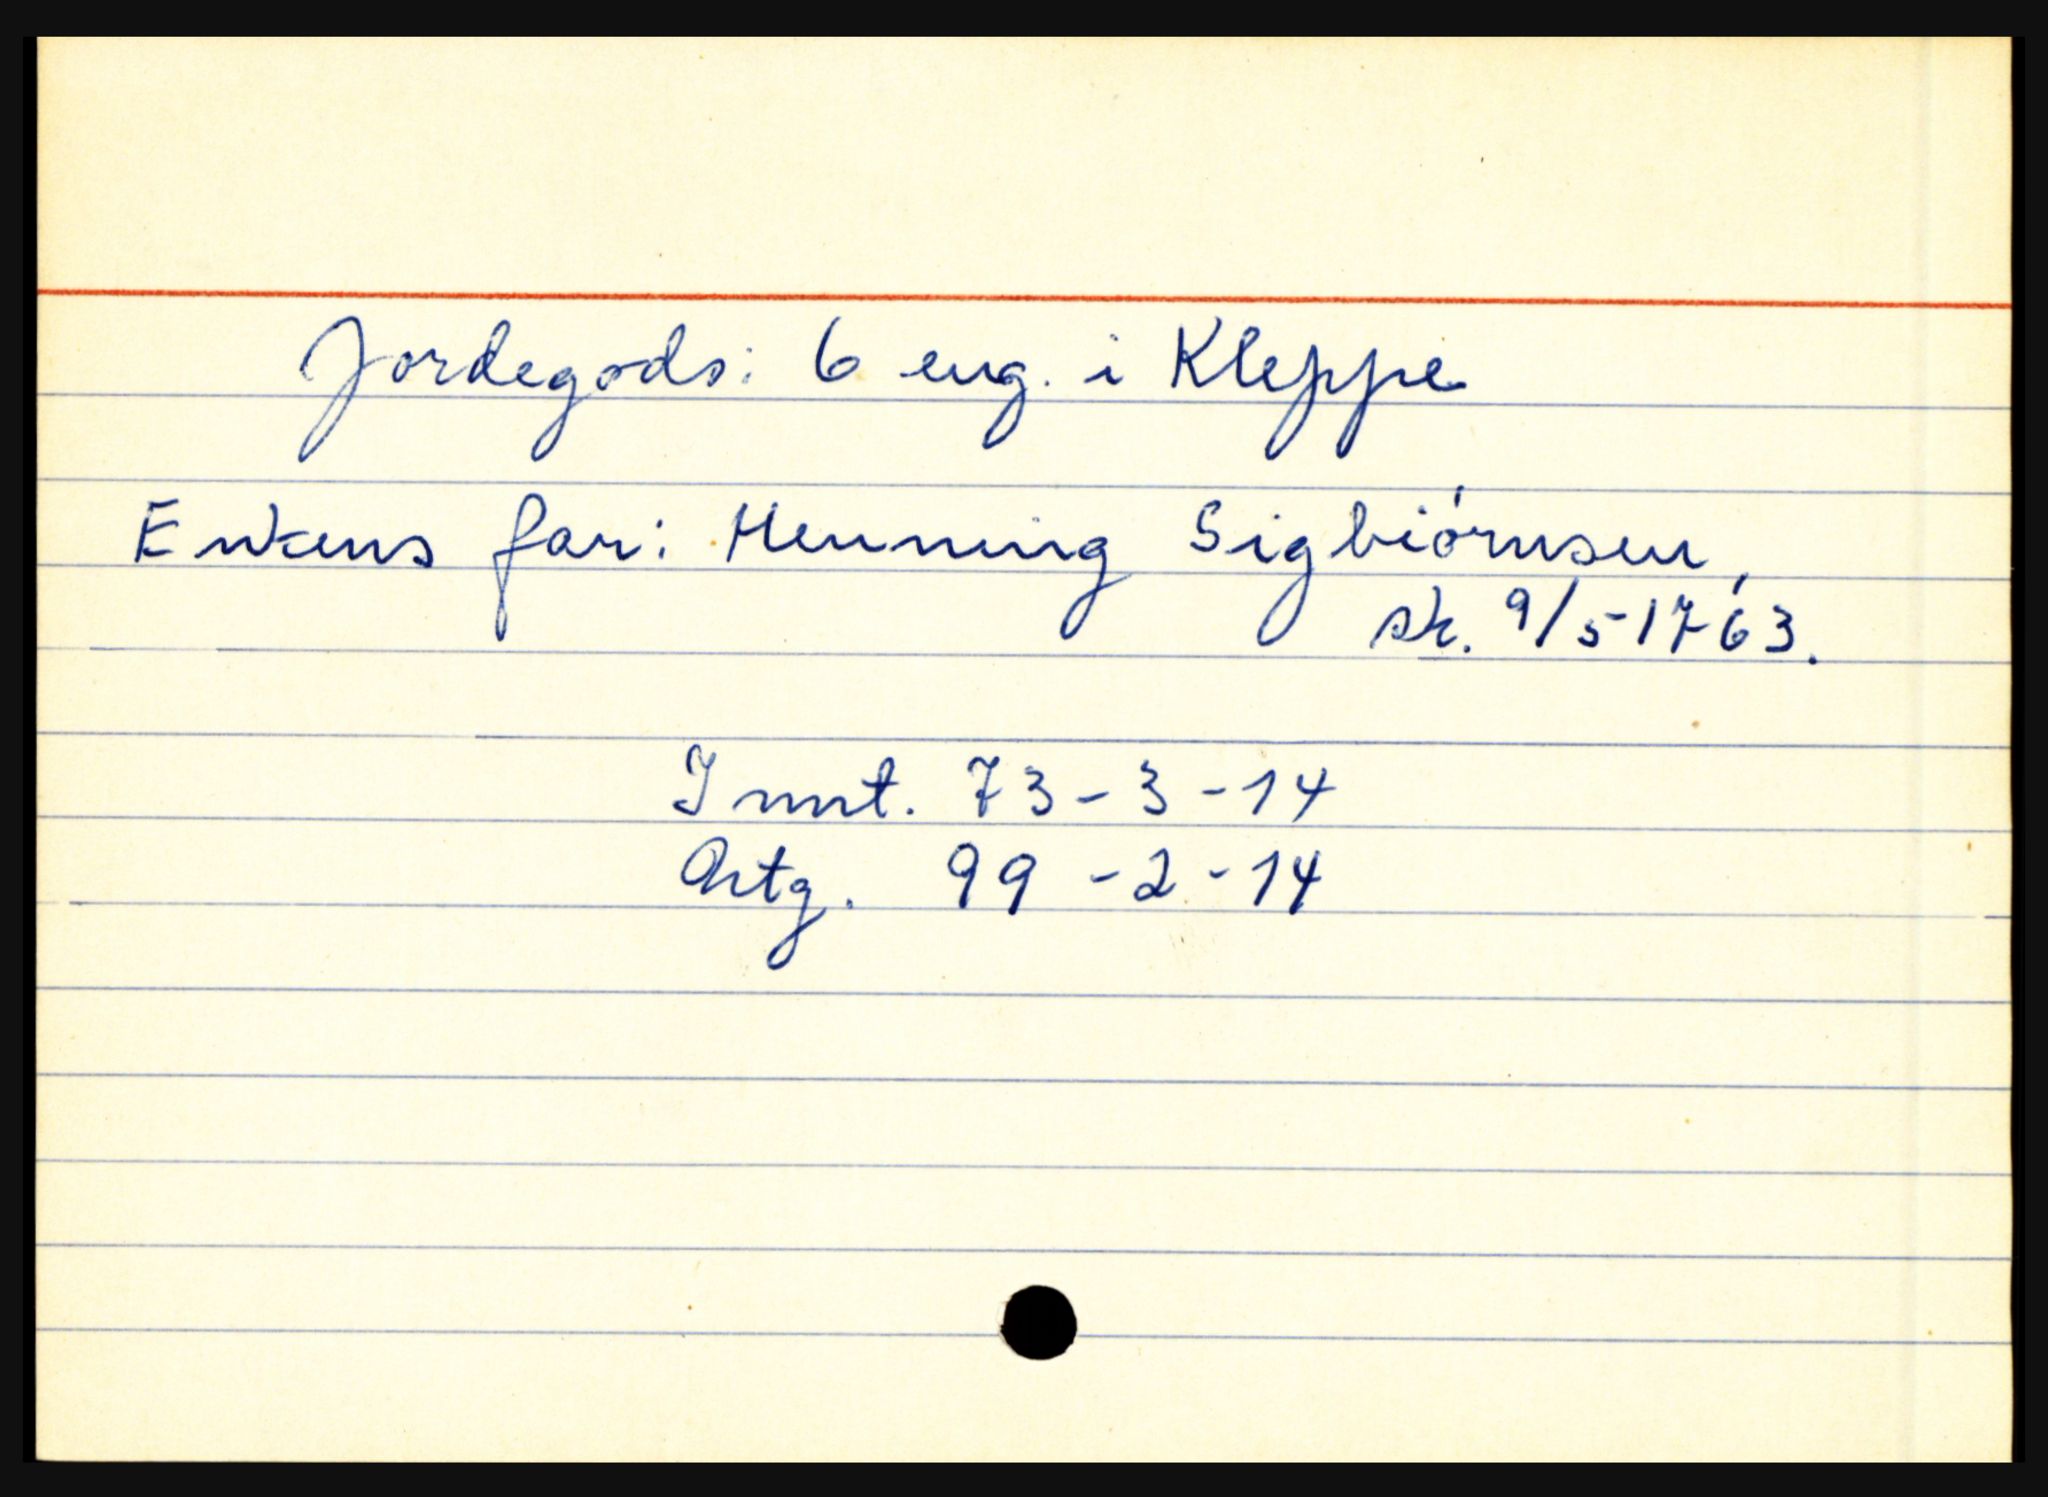 Jordegods: 6 eng. i Kleppe
Enkens far: Henning Sigbiórnsen,
sk. 9/5 1763.
Innt. 73-3-14
Artg. 99-2-14